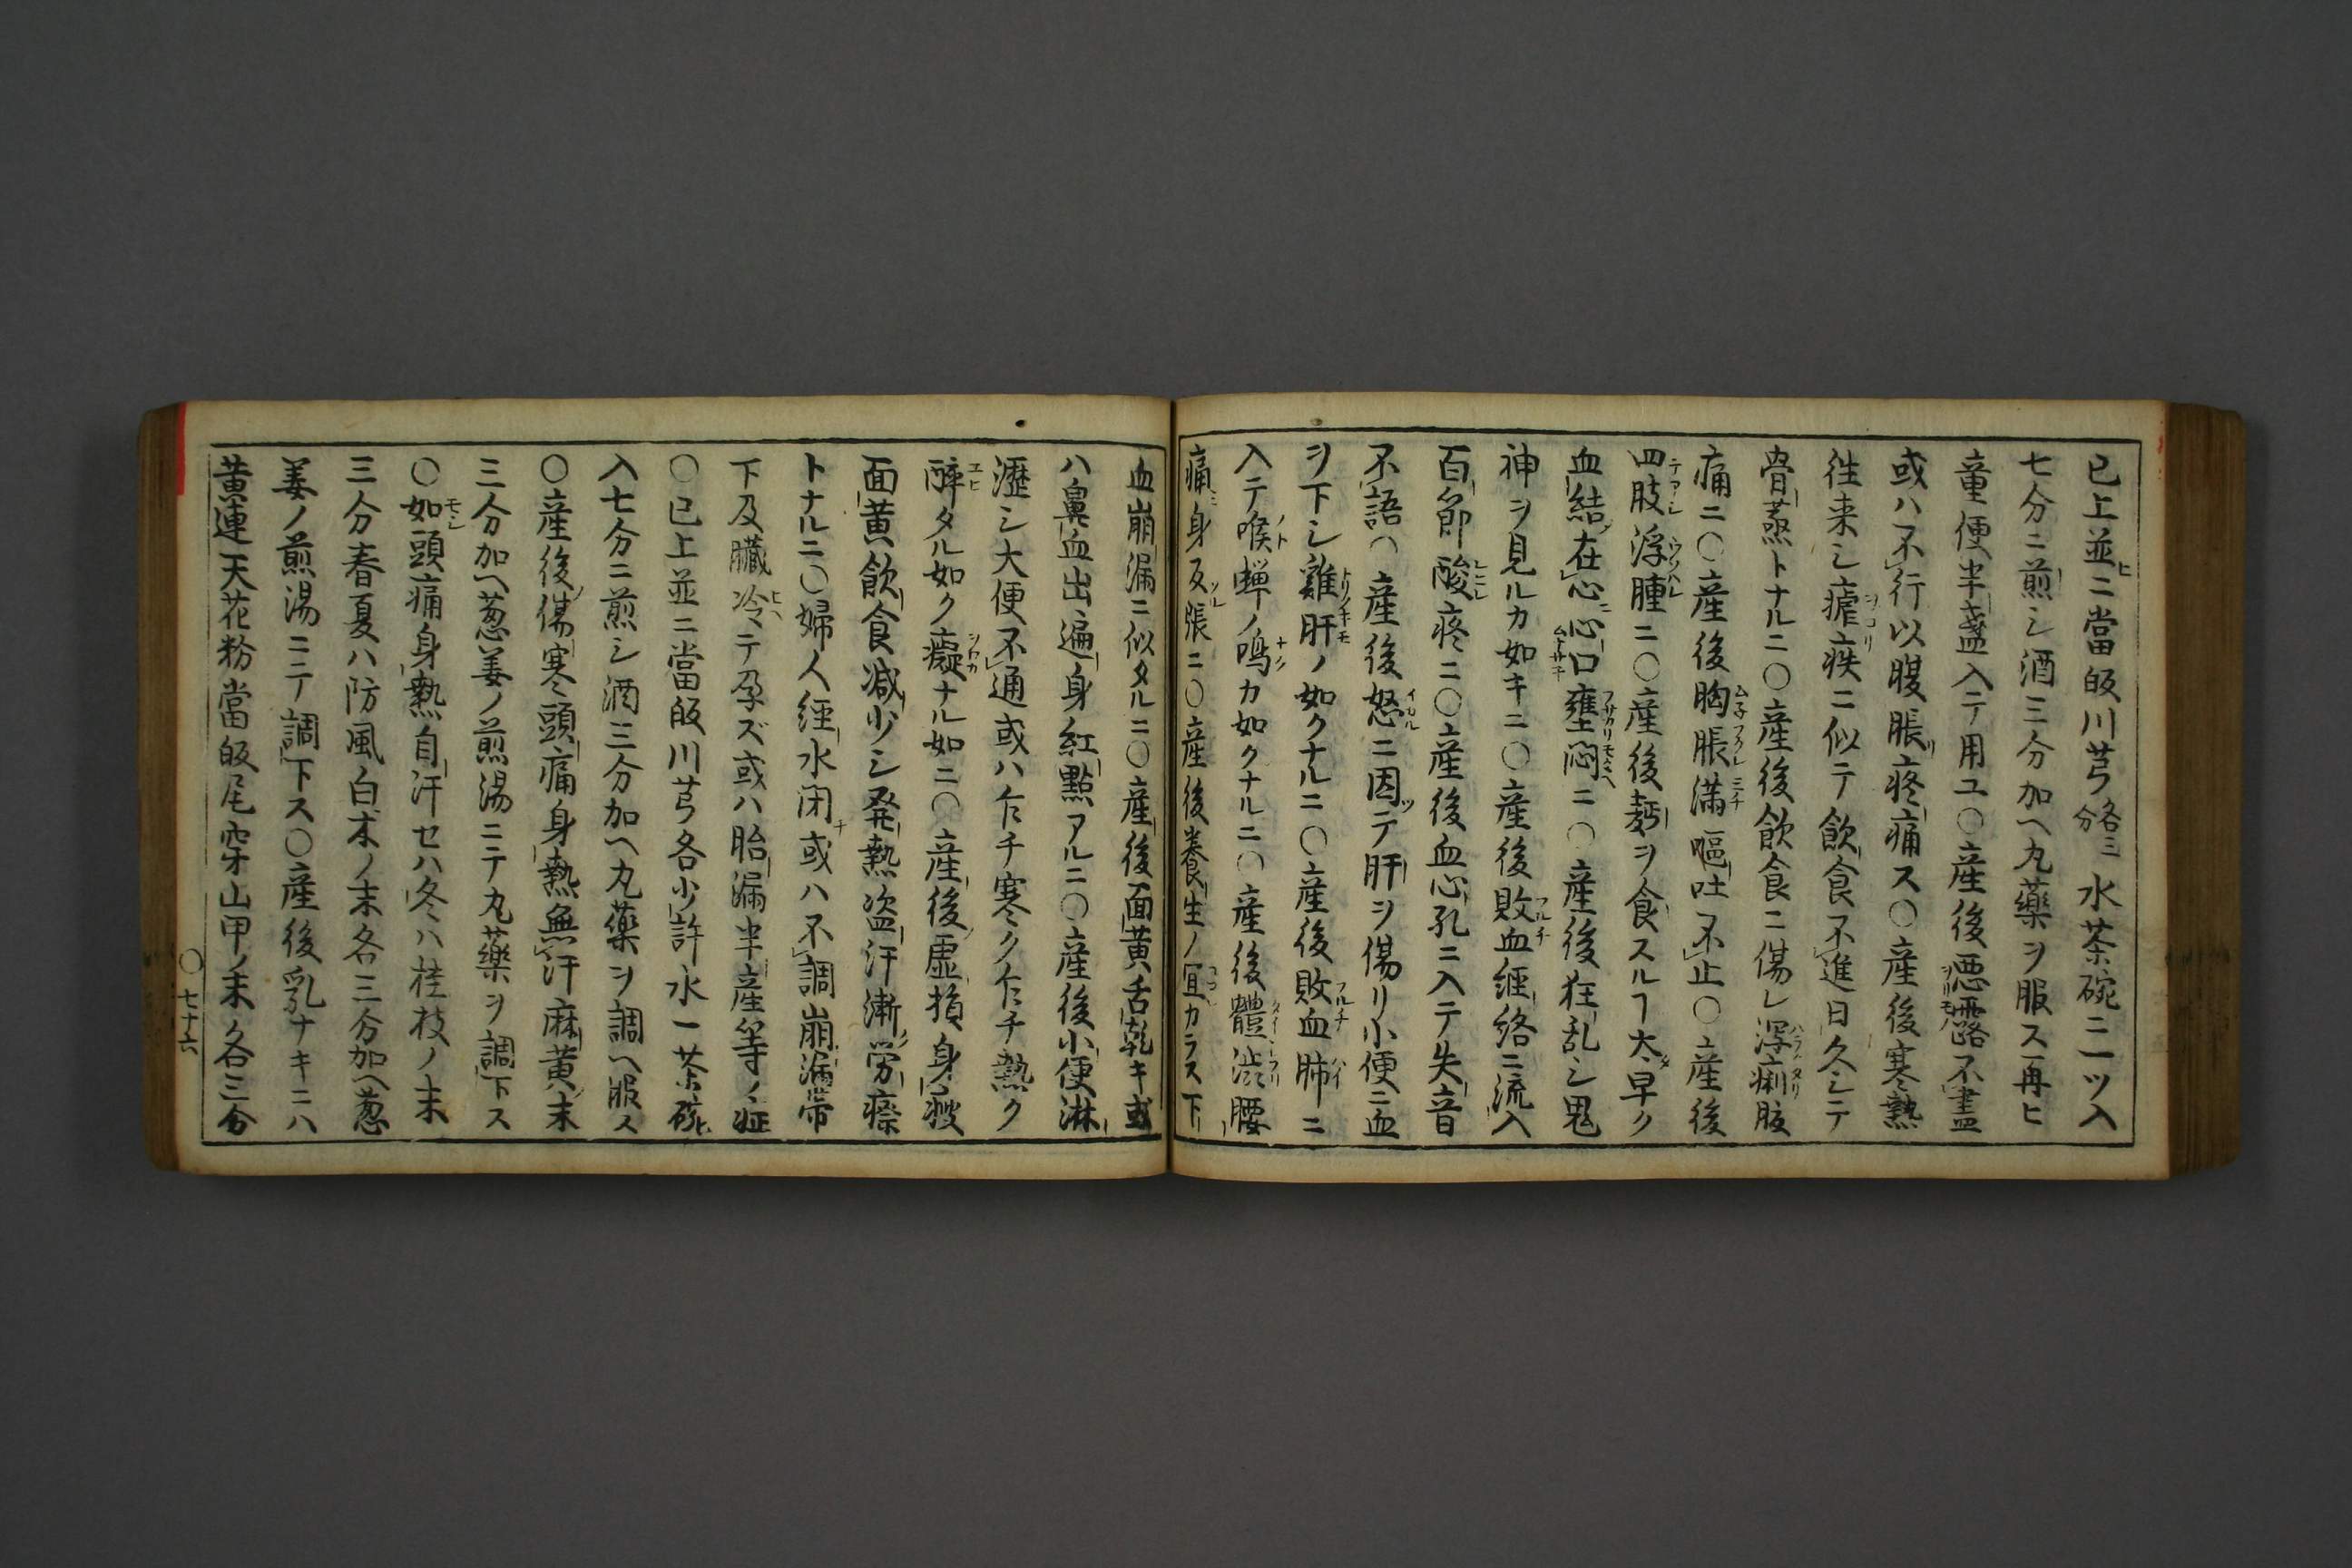 已上並ニ當皈川芎各三分水茶碗ニ一ツ入
七分ニ煎シ酒三分加ヘ丸藥ヲ服ス再ヒ
童便半盞入テ用ユ○産後悪露不盡
或ハ不行以腹脹疼痛ス○産後寒熱
徃来シ瘧疾ニ似テ飲食不進日久シテ
骨蒸トナルニ○産後飲食ニ傷レ瀉痢腹
痛ニ○産後胸脹満嘔吐不止○産後
四肢浮腫ニ○産後麪ヲ食スルヿ太早ク
血結在心心口壅悶ニ○産後狂乱シ鬼
神ヲ見ルカ如キニ○産後敗血經絡ニ流入
百節酸疼ニ○産後血心孔ニ入テ失音
不語○産後怒ニ因テ肝ヲ傷リ小便ニ血
ヲ下シ雞肝ノ如クナルニ○産後敗血肺ニ
入テ喉蝉ノ鳴カ如クナルニ○産後體澁腰
痛身反脹ニ○産後養生ノ宜カラス下
血崩漏ニ似タルニ○産後面黄舌乾キ或
ハ鼻血出遍身紅點アルニ○産後小便淋
瀝シ大便不通或ハ乍チ寒ク乍チ熱ク
醉タル如ク癡ナル如ニ○産後虚損身瘦
面黄飲食减少シ発熱盗汗漸労瘵
トナルニ○婦人經水閉或ハ不調崩漏帯
下及臓冷テ孕ズ或ハ胎漏半産等ノ症
○已上並ニ當皈川芎各少許水一茶碗
入七分ニ煎シ酒三分加ヘ丸藥ヲ調ヘ服ス
○産後傷寒頭痛身熱無汗麻黄末
三分加ヘ葱姜ノ煎湯ニテ丸藥ヲ調下ス
○如頭痛身熱自汗セハ冬ハ桂枝ノ末
三分春夏ハ防風白朮ノ末各三分加ヘ葱
姜ノ煎湯ニテ調下ス○産後乳ナキニハ
黄連天花粉當皈尾穿山甲ノ末各三分
○七十六